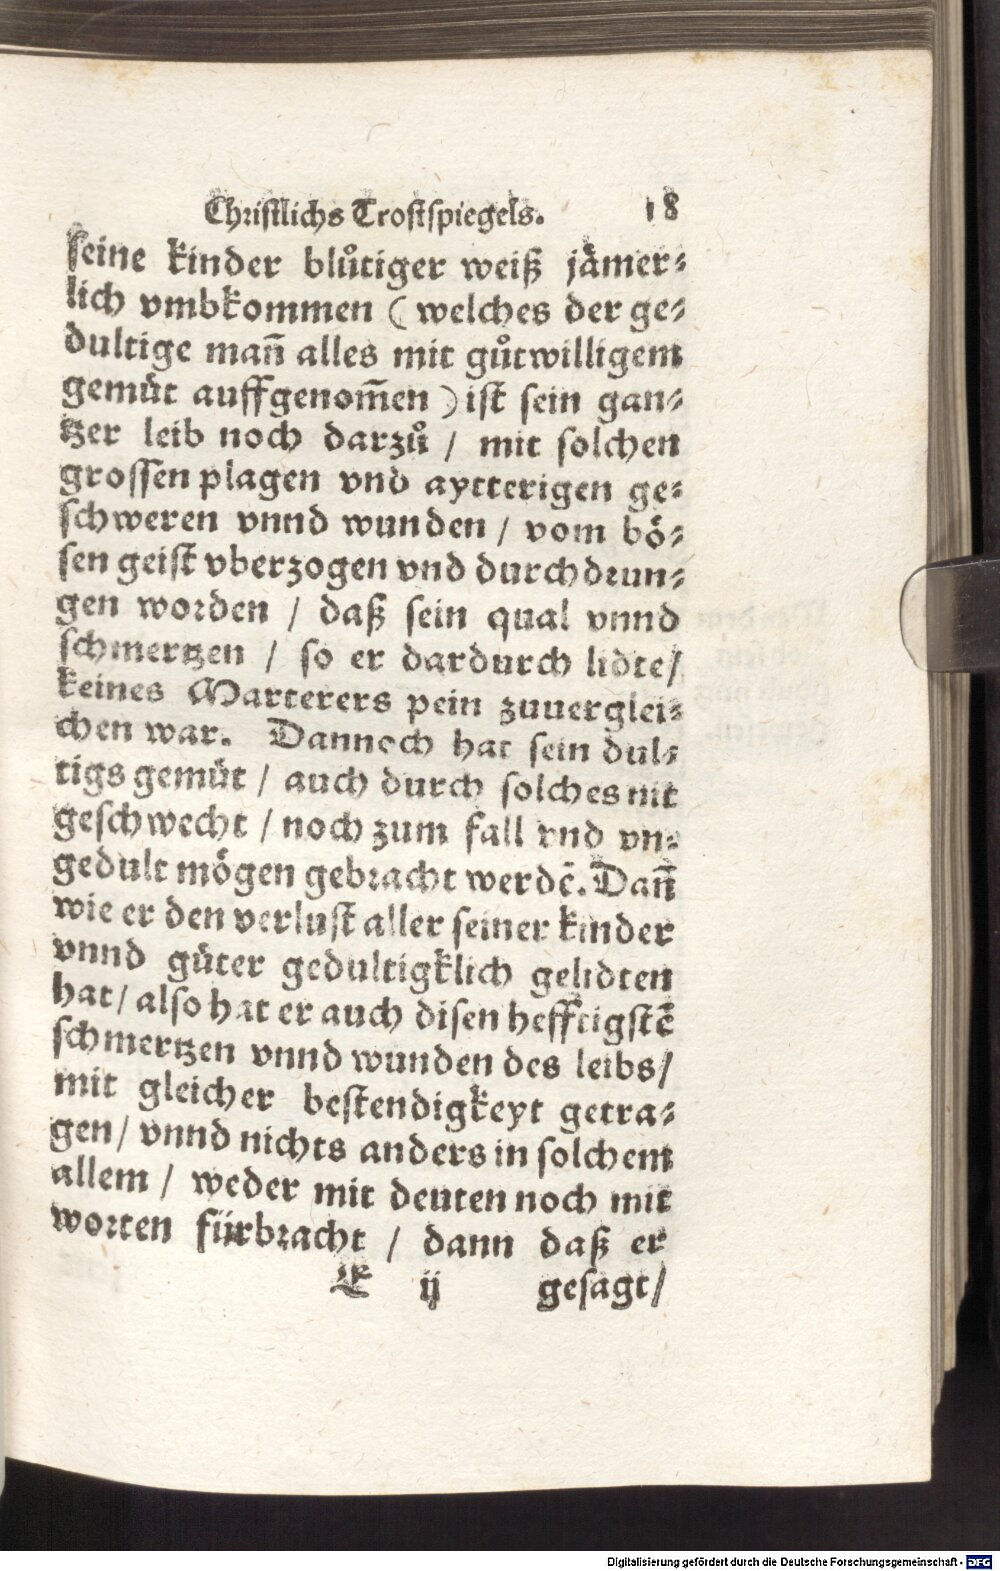 Christlichs Trostspiegels. 18
seine kinder blůtiger weiß jaͤmer⸗
lich vmbkommen ( welches der ge⸗
dultige mañ alles mit gůtwilligem
gemuͤt auffgenom̃en ) ist sein gan⸗
tzer leib noch darzů / mit solchen
grossen plagen vnd aytterigen ge⸗
schweren vnnd wunden / vom boͤ⸗
sen geist vberzogen vnd durchdrun⸗
gen worden / daß sein qual vnnd
schmertzen / so er dardurch lidte /
keines Marterers pein zuuerglei⸗
chen war. Dannoch hat sein dul⸗
tigs gemuͤt / auch durch solches nit
geschwecht / noch zum fall vnd vn⸗
gedult moͤgen gebracht werdẽ. Dañ
wie er den verlust aller seiner kinder
vnnd guͤter gedultigklich gelidten
hat / also hat er auch disen hefftigstẽ
schmertzen vnnd wunden des leibs /
mit gleicher bestendigkeyt getra⸗
gen / vnnd nichts anders in solchem
allem / weder mit deuten noch mit
worten fürbracht / dann daß er
E ij gesagt /
Digitalisierung gefördert durch die Deutsche Forschungsgemeinschaft - DFG